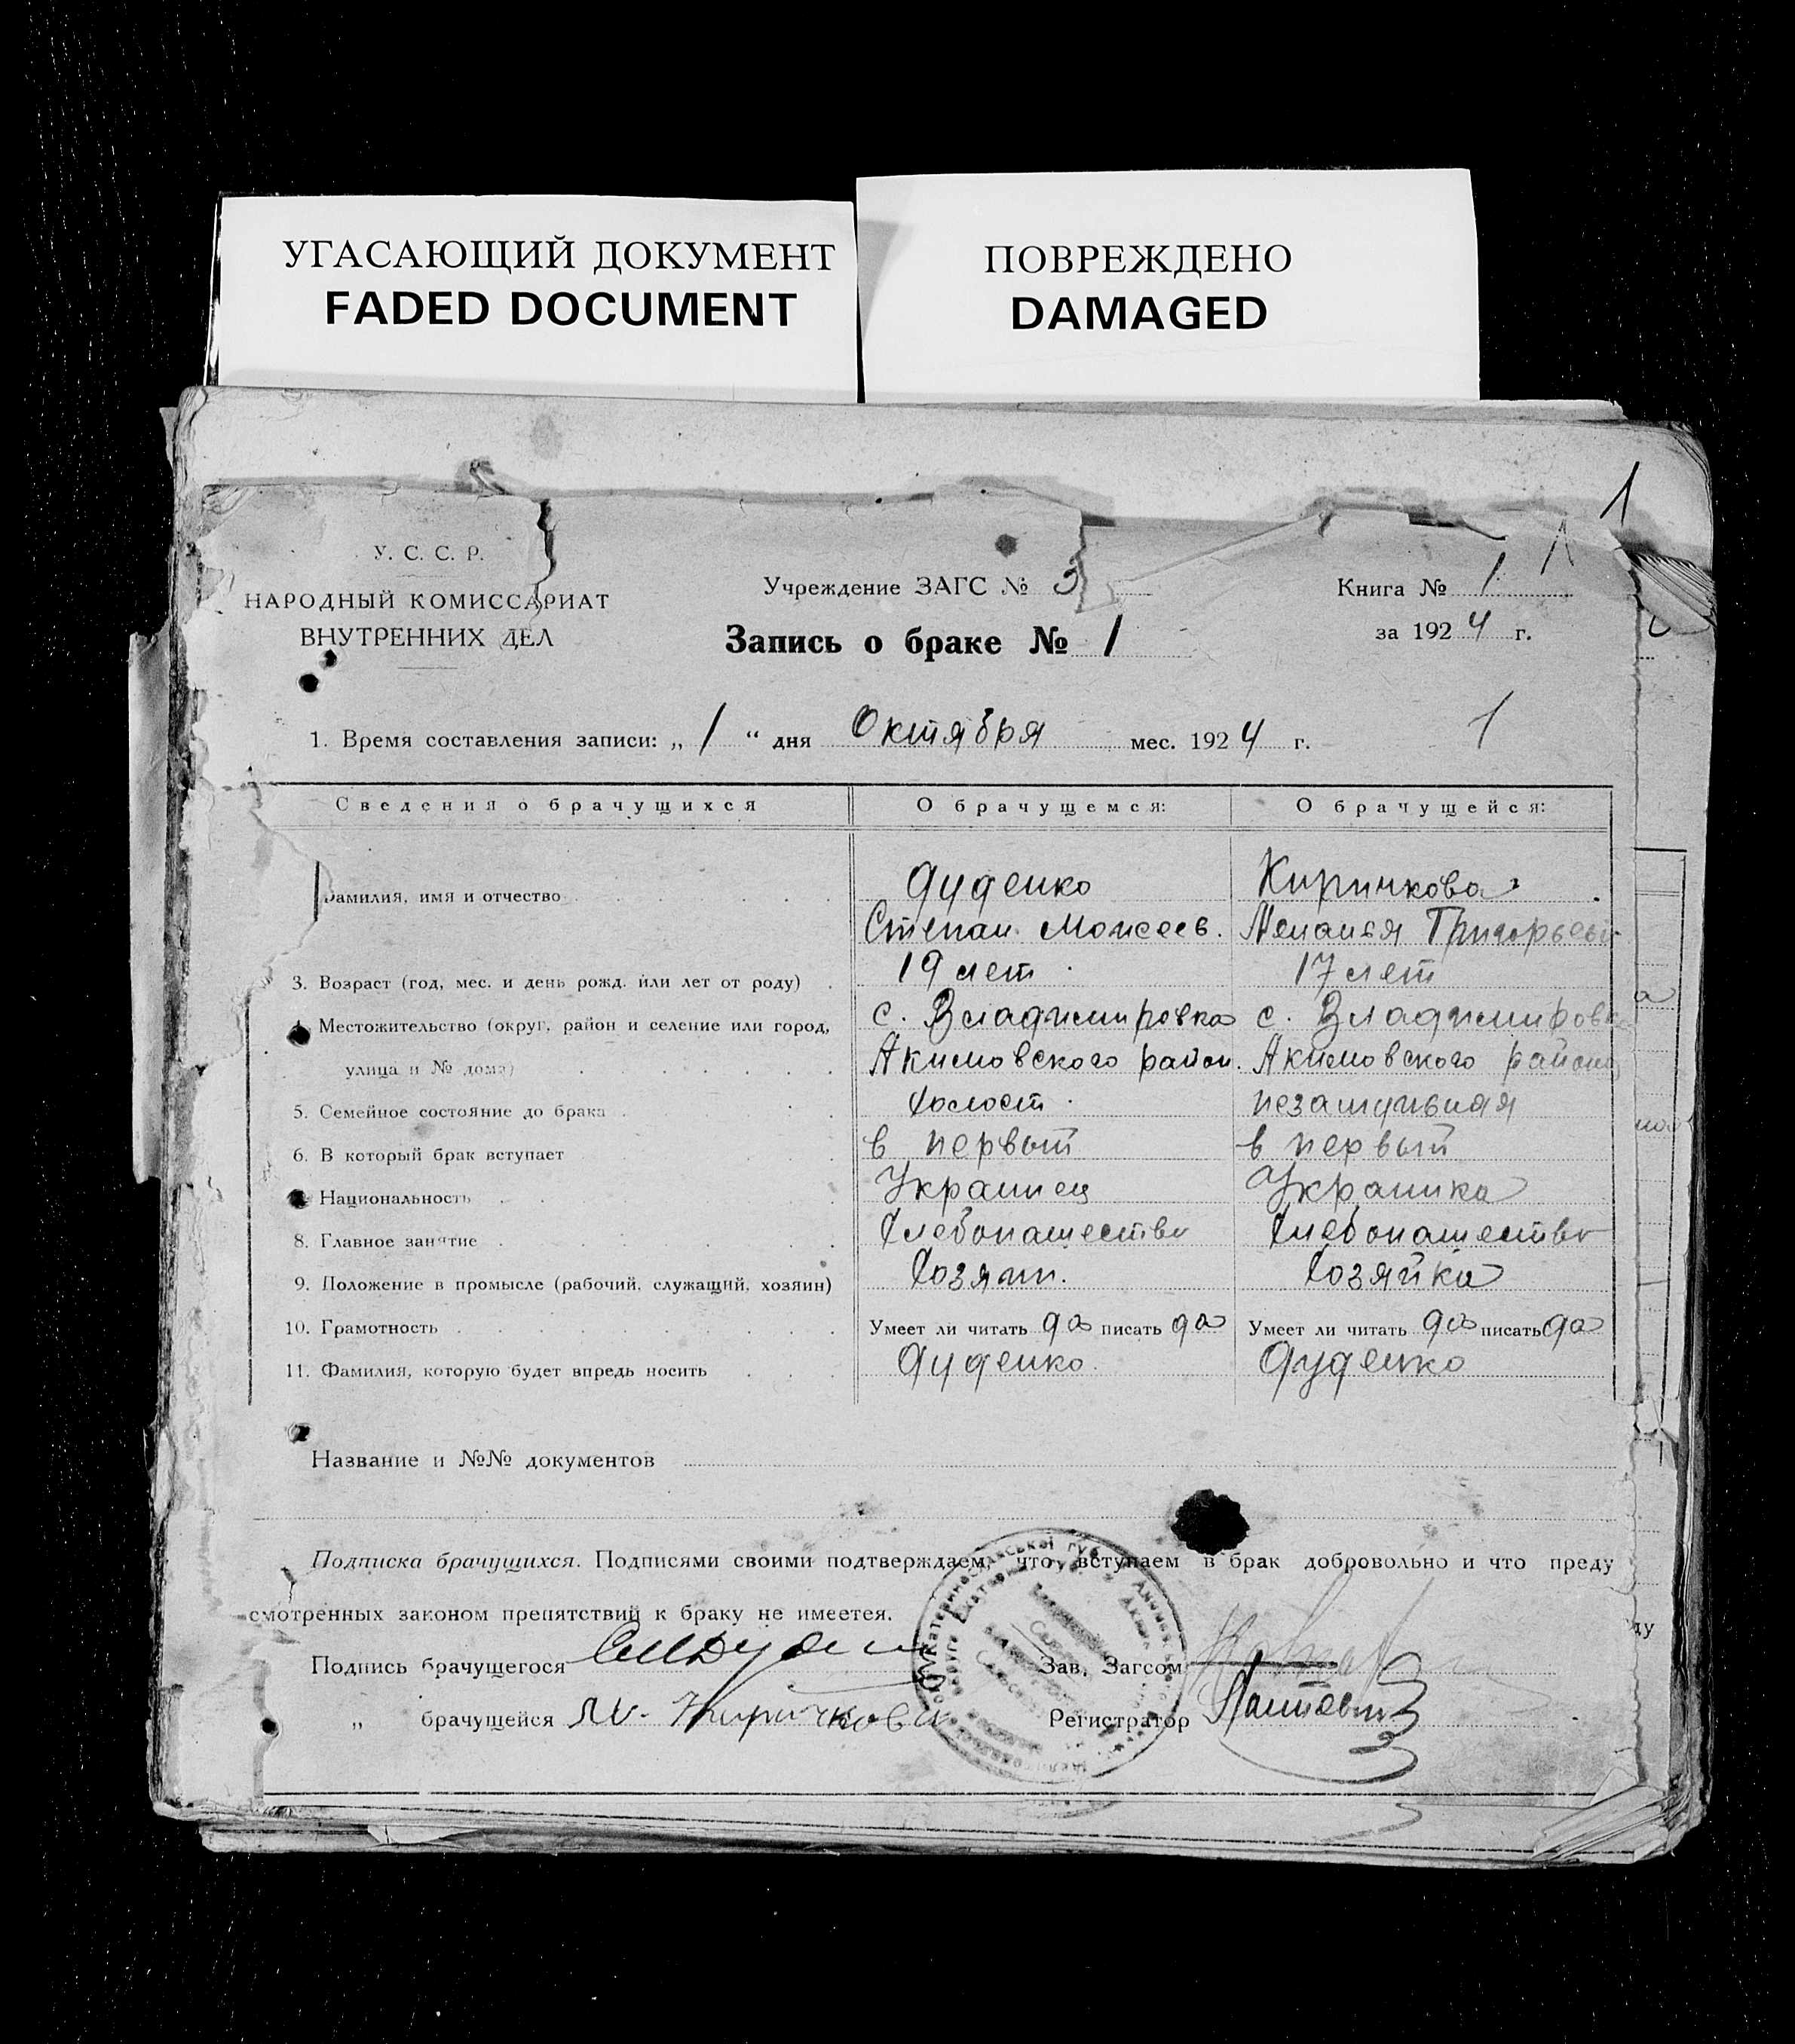 УГАСАЮЩИЙ ДОКУМЕНТ
FADED DOCUMENT
ПОВРЕЖДЕНО
DAMAGED
1
1
У. С. С. Р.
НАРОДНЫЙ КОМИССАРИАТ
ВНУТРЕННИХ ДЕЛ
Учреждение ЗАГС № 3
Запись о браке № 1
Книга № 1
за 1924 г.
1. Время составления записи: „ 1 “ дня Октября мес. 1924 г.
1
Сведения о брачущихся О брачущемся: О брачущейся:
Фамилия, имя и отчество Дуденко Киричкова
Степан Моисеев. Меланья Григорьевн
3. Возраст (год, мес. и день рожд. или лет от роду) 19 лет 17 лет
Местожительство (округ, район и селение или город, с. Владимировка с. Владимировка
улица и № дома) Акимовского район. Акимовского района
5. Семейное состояние до брака холост незамужняя
6. В который брак вступает в первый в первый
Национальность Украинец Украинка
8. Главное занятие Хлебопашество Хлебопашество
9. Положение в промысле (рабочий, служащий, хозяин) Хозяин. Хозяйка
10. Грамотность Умеет ли читать да писать да Умеет ли читать да писать да
11. Фамилия, которую будет впредь носить Дуденко Дуденко
Название и №№ документов
Подписка брачущихся. Подписями своими подтверждаем, что вступаем в брак добровольно и что преду
смотренных законом препятствий к браку не имеется.
Подпись брачущегося Зав. Загсом
„ брачущейся М. Киричкова Регистратор